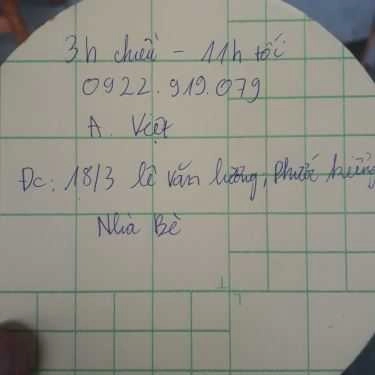 3h chiều - 11h tối
0922.919.079
A. Việt
Đc: 18/3 lê văn lương, Phước kiểng
Nhà Bè